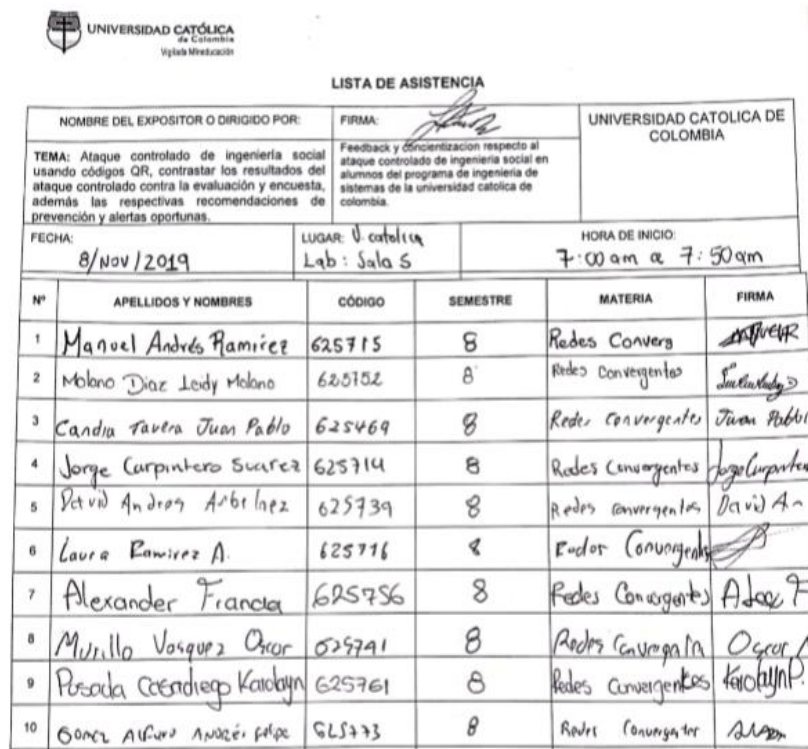 UNIVERSIDAD CATÓLICA
de Colombia
Vigilada Mineducación
LISTA DE ASISTENCIA
NOMBRE DEL EXPOSITOR O DIRIGIDO POR:
FIRMA:
UNIVERSIDAD CATOLICA DE
COLOMBIA
TEMA: Ataque controlado de ingeniería social
usando códigos QR, contrastar los resultados del
ataque controlado contra la evaluación y encuesta,
además las respectivas recomendaciones de
prevención y alertas oportunas.
Feedback y concientizacion respecto al
ataque controlado de ingenieria social en
alumnos del programa de ingenieria de
sistemas de la universidad catolica de
colombia.
FECHA:
8/Nov/2019
LUGAR: U. catolica
Lab: Sala 5
HORA DE INICIO:
7:00 am a 7:50am
Nº APELLIDOS Y NOMBRES CÓDIGO SEMESTRE MATERIA FIRMA
1 Manuel Andrés Ramirez 625715 8 Redes Converg
2 Molano Diaz Leidy Molano 625752 8 Redes Convergentes
3 Candia Tavera Juan Pablo 625469 8 Redes Convergentes Juan Pablo
4 Jorge Carpintero Suarez 625714 8 Redes Convergentes Jorge Carpintero
5 David Andres Arbelaez 625739 8 Redes convergentes David A
6 Laura Ramirez A. 625716 8 Redes Convergentes
7 Alexander Francia 625756 8 Redes Convergentes Alex F
8 Murillo Vasquez Oscar 625741 8 Redes Convergen Oscar
9 Posada Casadiego Karolayn 625761 8 Redes Convergentes Karolayn P.
10 Gomez Alfaro Andrés felipe 625773 8 Redes Convergentes